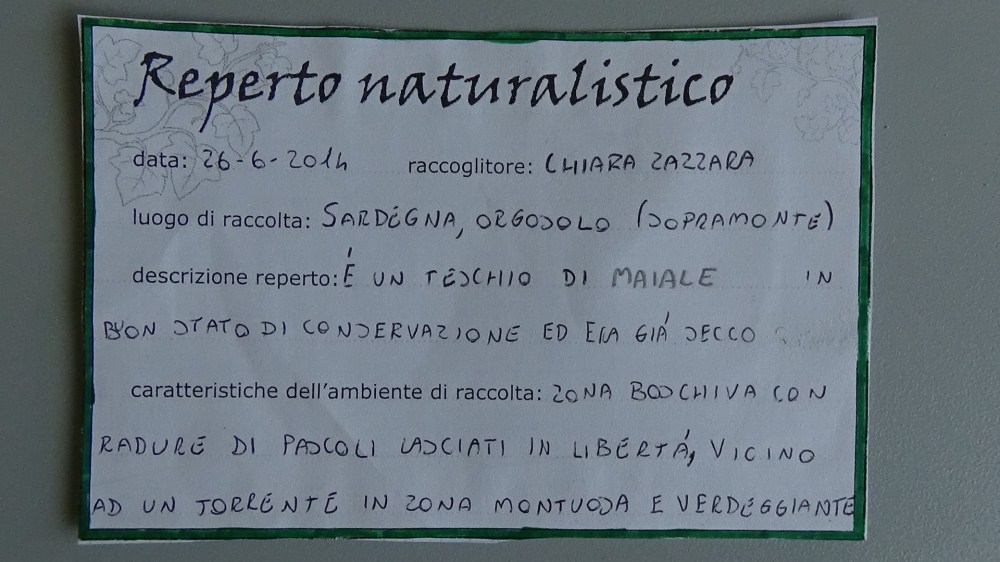 Reperto naturalistico
data: 26-6-2014 raccoglitore: CHIARA ZAZZARA
luogo di raccolta: SARDEGNA, ORGOSOLO (SOPRAMONTE)
descrizione reperto: É UN TESCHIO DI MAIALE IN
BUON STATO DI CONSERVAZIONE ED ERA GIÁ SECCO
caratteristiche dell'ambiente di raccolta: ZONA BOSCHIVA CON
RADURE DI PASCOLI LASCIATI IN LIBERTÁ, VICINO
AD UN TORRENTE IN ZONA MONTUOSA E VERDEGGIANTE